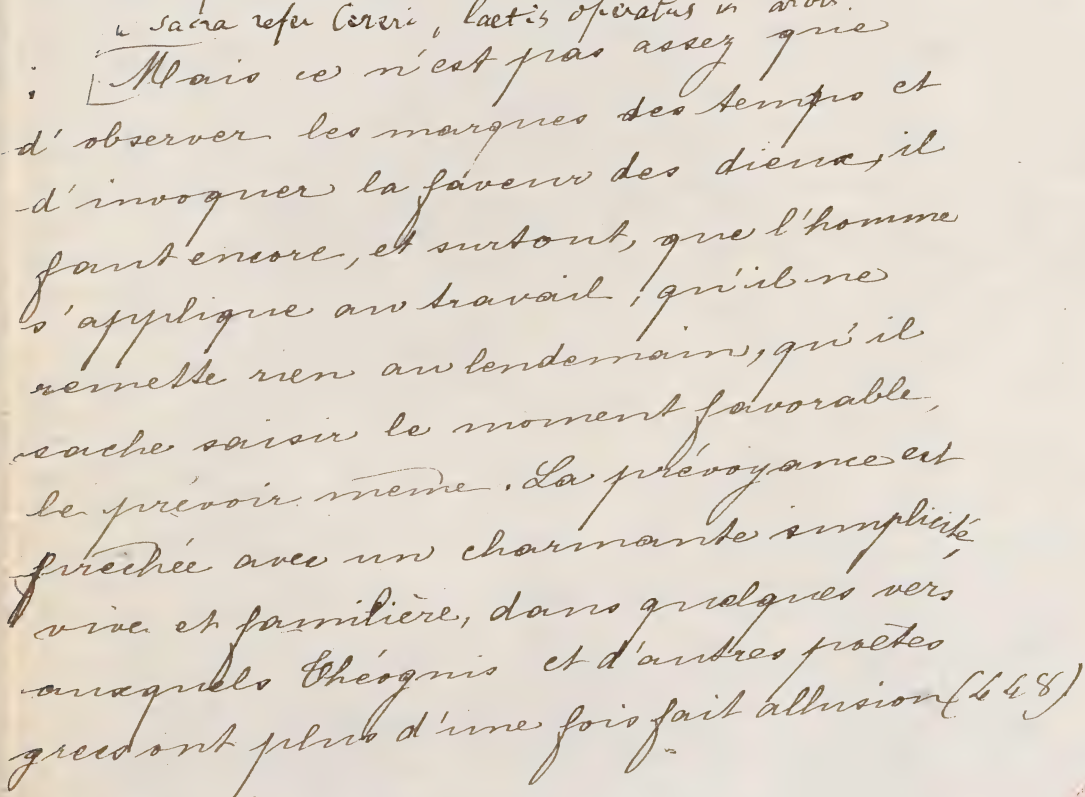 " sacra refer Cereri, laetis operatus in arvis.
: [Mais ce n'est pas assez que
d'observer les marques des temps et
d'invoquer la faveur des dieux, il
faut encore, et surtout, que l'homme
s'applique au travail, qu'il ne
remette rien au lendemain, qu'il
sache saisir le moment favorable,
le prévoir même. La prévoyance est
prêchée avec un charmante simplicité,
vive et familière, dans quelques vers
auxquels Théognis et d'autres poètes
grecs ont plus d'une fois fait allusion (448)